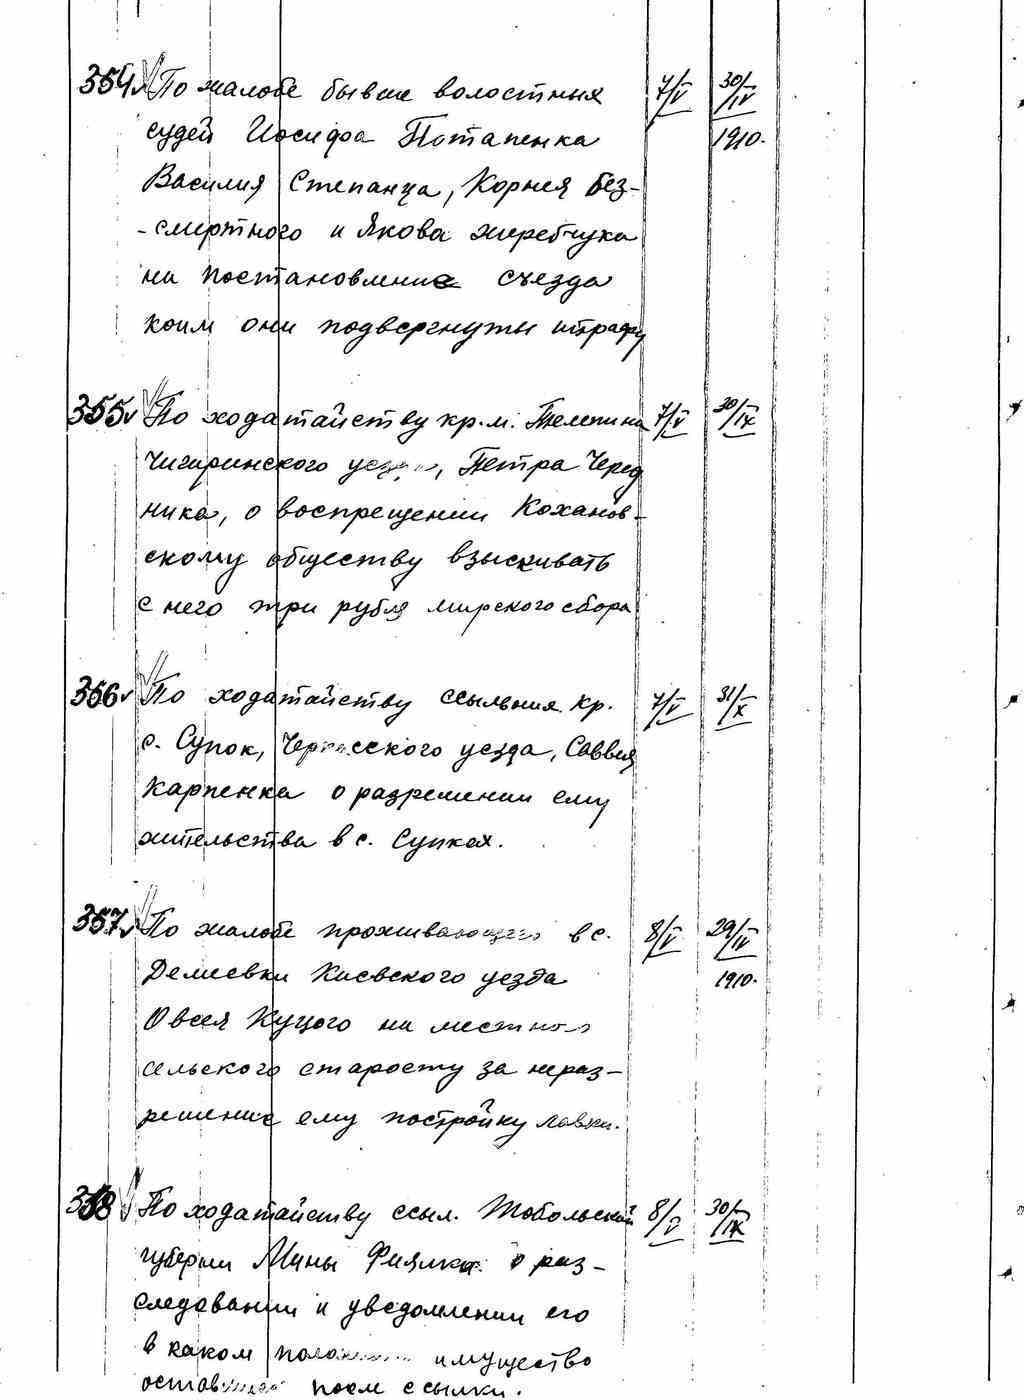 354 По жалобе бывше волостных 7/V 30/IV
судей Иосифа Потапенка 1910.
Василия Степанца, Корнея Без-
-смертного и Якова Жеребчука
на постановление съезда
коим они подвергнуты штрафу
355 По ходатайству кр. м. Телепина 7/V 30/IX
Чигиринского уезда, Петра Черед
ника, о воспрещении Коханов-
скому обществу взыскивать
с него три рубля мирского сбора
356 По ходатайству ссыльния кр. 7/V 31/X
с. Сунок, Черкасского уезда, Саввея
Карпенка о разрешении ему
жительства в с. Сунках.
357 По жалобе проживающего в с. 8/V 29/IV
Демиевки Киевского уезда 1910.
Овсея Куцого на местного
сельского старосту за нераз-
решение ему постройку лавки.
358 По ходатайству ссыл. Тобольской 8/V 30/IX
губернии Мины Фиялка о раз-
следовании и уведомлении его
в каком имущество
после ссылки.